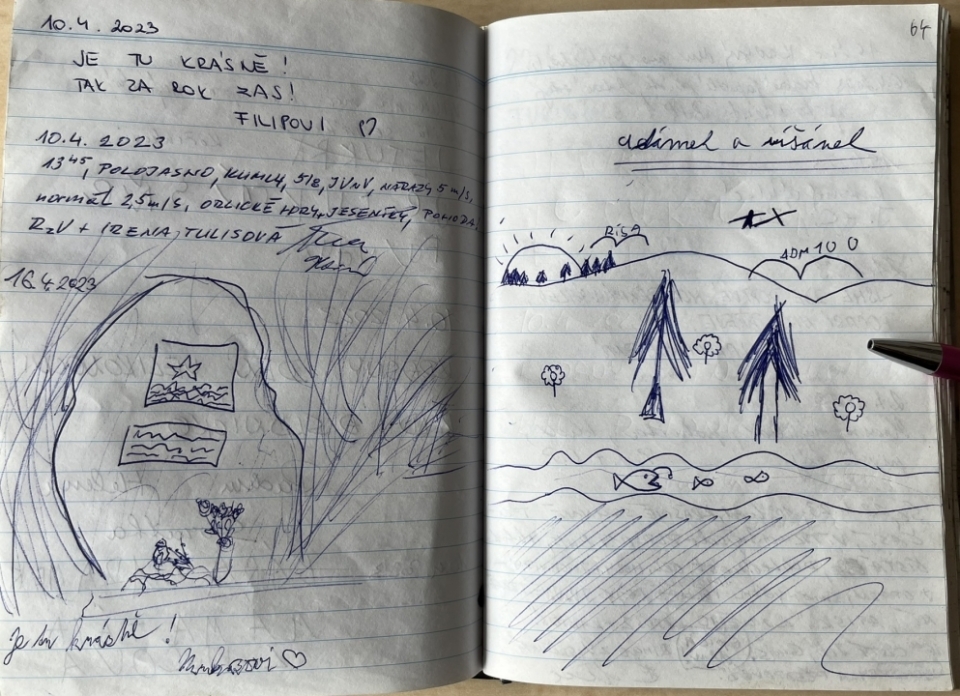 10.4.2023
JE TU KRÁSNĚ!
TAK ZA ROK ZAS!
FILIPOVI
10.4.2023
13⁴⁵, POLOJASNO, KUMULY, 5/8, JVnV, NÁRAZY 5 m/s,
normál 2,5 m/s, ORLICKÉ HORY+JESENÍKY, POHODA
RzV + IRENA TULISOVÁ
16.4.2023
Je tu krásně!
64
adámek a ríšánek
RÍŠA